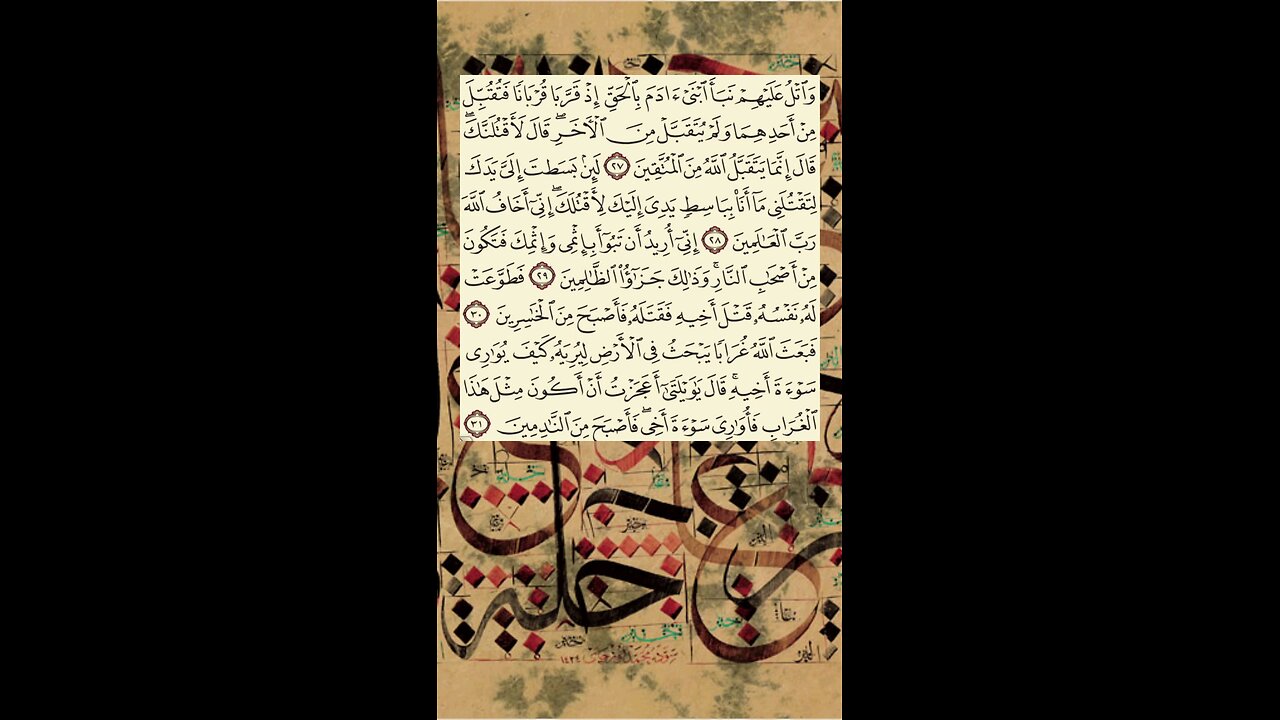 وَٱتۡلُ عَلَيۡهِمۡ نَبَأَ ٱبۡنَيۡ ءَادَمَ بِٱلۡحَقِّ إِذۡ قَرَّبَا قُرۡبَانٗا فَتُقُبِّلَ
مِنۡ أَحَدِهِمَا وَلَمۡ يُتَقَبَّلۡ مِنَ ٱلۡأٓخَرِۖ قَالَ لَأَقۡتُلَنَّكَۖ
قَالَ إِنَّمَا يَتَقَبَّلُ ٱللَّهُ مِنَ ٱلۡمُتَّقِينَ ٢٧ لَئِنۢ بَسَطتَ إِلَيَّ يَدَكَ
لِتَقۡتُلَنِي مَآ أَنَا۠ بِبَاسِطٖ يَدِيَ إِلَيۡكَ لِأَقۡتُلَكَۖ إِنِّيٓ أَخَافُ ٱللَّهَ
رَبَّ ٱلۡعَٰلَمِينَ ٢٨ إِنِّيٓ أُرِيدُ أَن تَبُوٓأَ بِإِثۡمِي وَإِثۡمِكَ فَتَكُونَ
مِنۡ أَصۡحَٰبِ ٱلنَّارِۚ وَذَٰلِكَ جَزَٰٓؤُاْ ٱلظَّٰلِمِينَ ٢٩ فَطَوَّعَتۡ
لَهُۥ نَفۡسُهُۥ قَتۡلَ أَخِيهِ فَقَتَلَهُۥ فَأَصۡبَحَ مِنَ ٱلۡخَٰسِرِينَ ٣٠
فَبَعَثَ ٱللَّهُ غُرَابٗا يَبۡحَثُ فِي ٱلۡأَرۡضِ لِيُرِيَهُۥ كَيۡفَ يُوَٰرِي
سَوۡءَةَ أَخِيهِۚ قَالَ يَٰوَيۡلَتَىٰٓ أَعَجَزۡتُ أَنۡ أَكُونَ مِثۡلَ هَٰذَا
ٱلۡغُرَابِ فَأُوَٰرِيَ سَوۡءَةَ أَخِيۖ فَأَصۡبَحَ مِنَ ٱلنَّٰدِمِينَ ٣١